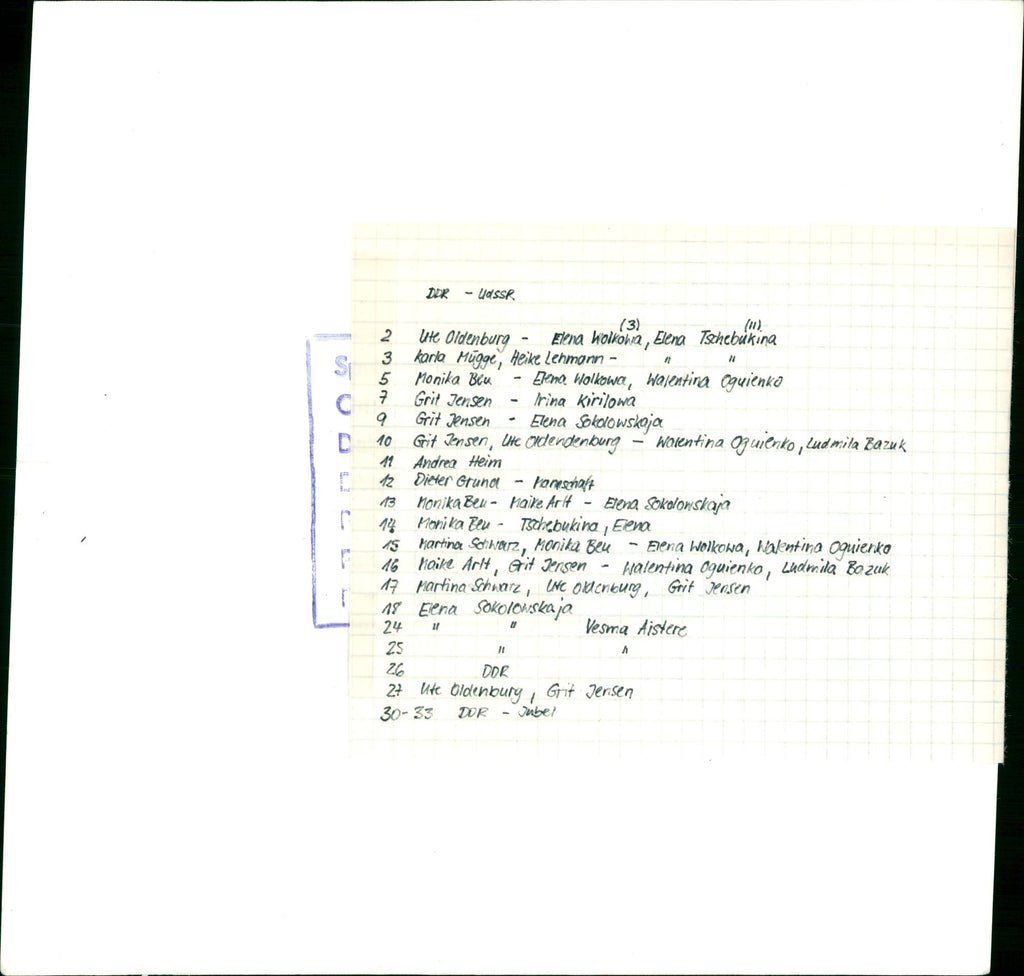 DDR - UdSSR
(3) (11)
2 Ute Oldenburg - Elena Wolkowa, Elena Tschebukina
3 Karla Mügge, Heike Lehmann - " "
5 Monika Beu - Elena Wolkowa, Walentina Oguienko
7 Grit Jensen - Irina Kirilowa
9 Grit Jensen - Elena Sokolowskaja
10 Grit Jensen, Ute Oldendenburg - Walentina Oguienko, Ludmila Bazuk
11 Andrea Heim
12 Dieter Grund - Mannschaft
13 Monika Beu - Maike Arlt - Elena Sokolowskaja
14 Monika Beu - Tschebukina, Elena
15 Martina Schwarz, Monika Beu - Elena Wolkowa, Walentina Oguienko
16 Maike Arlt, Grit Jensen - Walentina Oguienko, Ludmila Bazuk
17 Martina Schwarz, Ute Oldenburg, Grit Jensen
18 Elena Sokolowskaja
24 " " Vesma Aistere
25 " "
26 DDR
27 Ute Oldenburg, Grit Jensen
30-33 DDR - Jubel